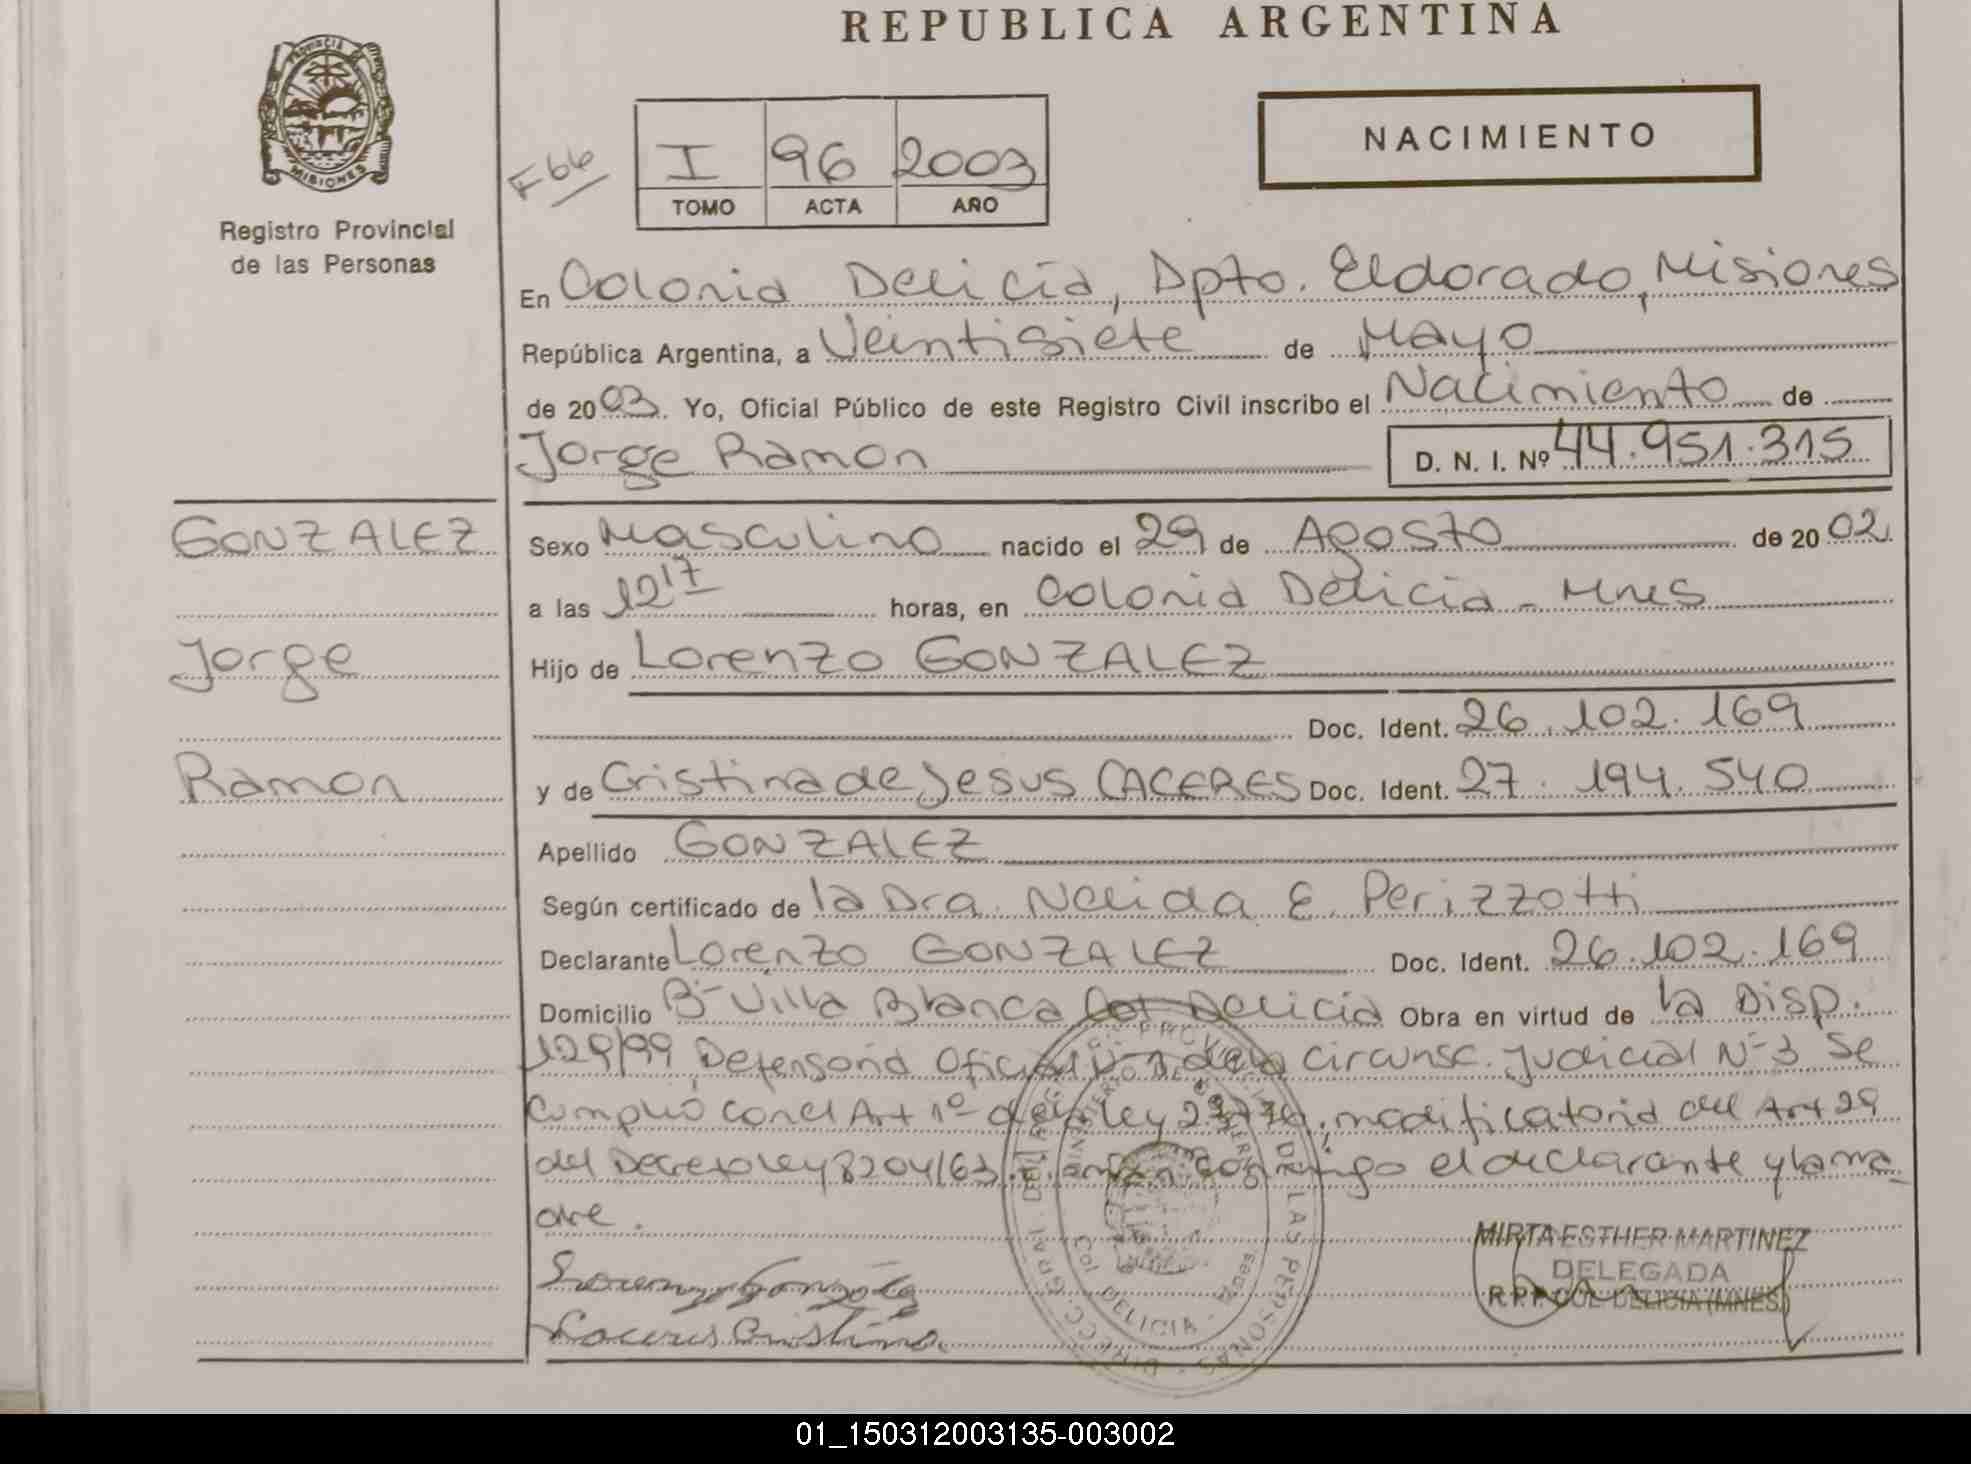 REPUBLICA ARGENTINA
PROVINCIA DE
MISIONES
Registro Provincial
de las Personas
F66
I 96 2003
TOMO ACTA AÑO
NACIMIENTO
En Colonia Delicia, Dpto. Eldorado, Misiones
República Argentina, a Veintisiete de Mayo
de 2003. Yo, Oficial Público de este Registro Civil inscribo el Nacimiento de
Jorge Ramon D. N. I. Nº 44.951.315
GONZALEZ
Jorge
Ramon
Sexo Masculino nacido el 29 de Agosto de 2002
a las 12 17 horas, en Colonia Delicia - Mnes
Hijo de Lorenzo GONZALEZ
Doc. Ident. 26.102.169
y de Cristina de Jesus CACERES Doc. Ident. 27.194.540
Apellido GONZALEZ
Según certificado de la Dra. Nelida E. Perizzotti
Declarante Lorenzo GONZALEZ Doc. Ident. 26.102.169
Domicilio Bº Villa Blanca Col Delicia Obra en virtud de la Disp.
129/99, Defensoria Oficial Nº 1 de la Circunsc. Judicial Nº 3 Se
Cumplió con el Art 1º de la ley modificatoria del Art 29
del Decreto ley 8204/63. conmigo el declarante y la ma
dre.
Lorenzo González
Caceres Cristina
MIRTA ESTHER MARTINEZ
DELEGADA
R.P.P. COL DELICIA (MNES)
DIRECC. GRAL. DEL REG. PROVINCIAL DE LAS PERSONAS
MINISTERIO DE GOBIERNO
Col. DELICIA - Mnes
01_150312003135-003002